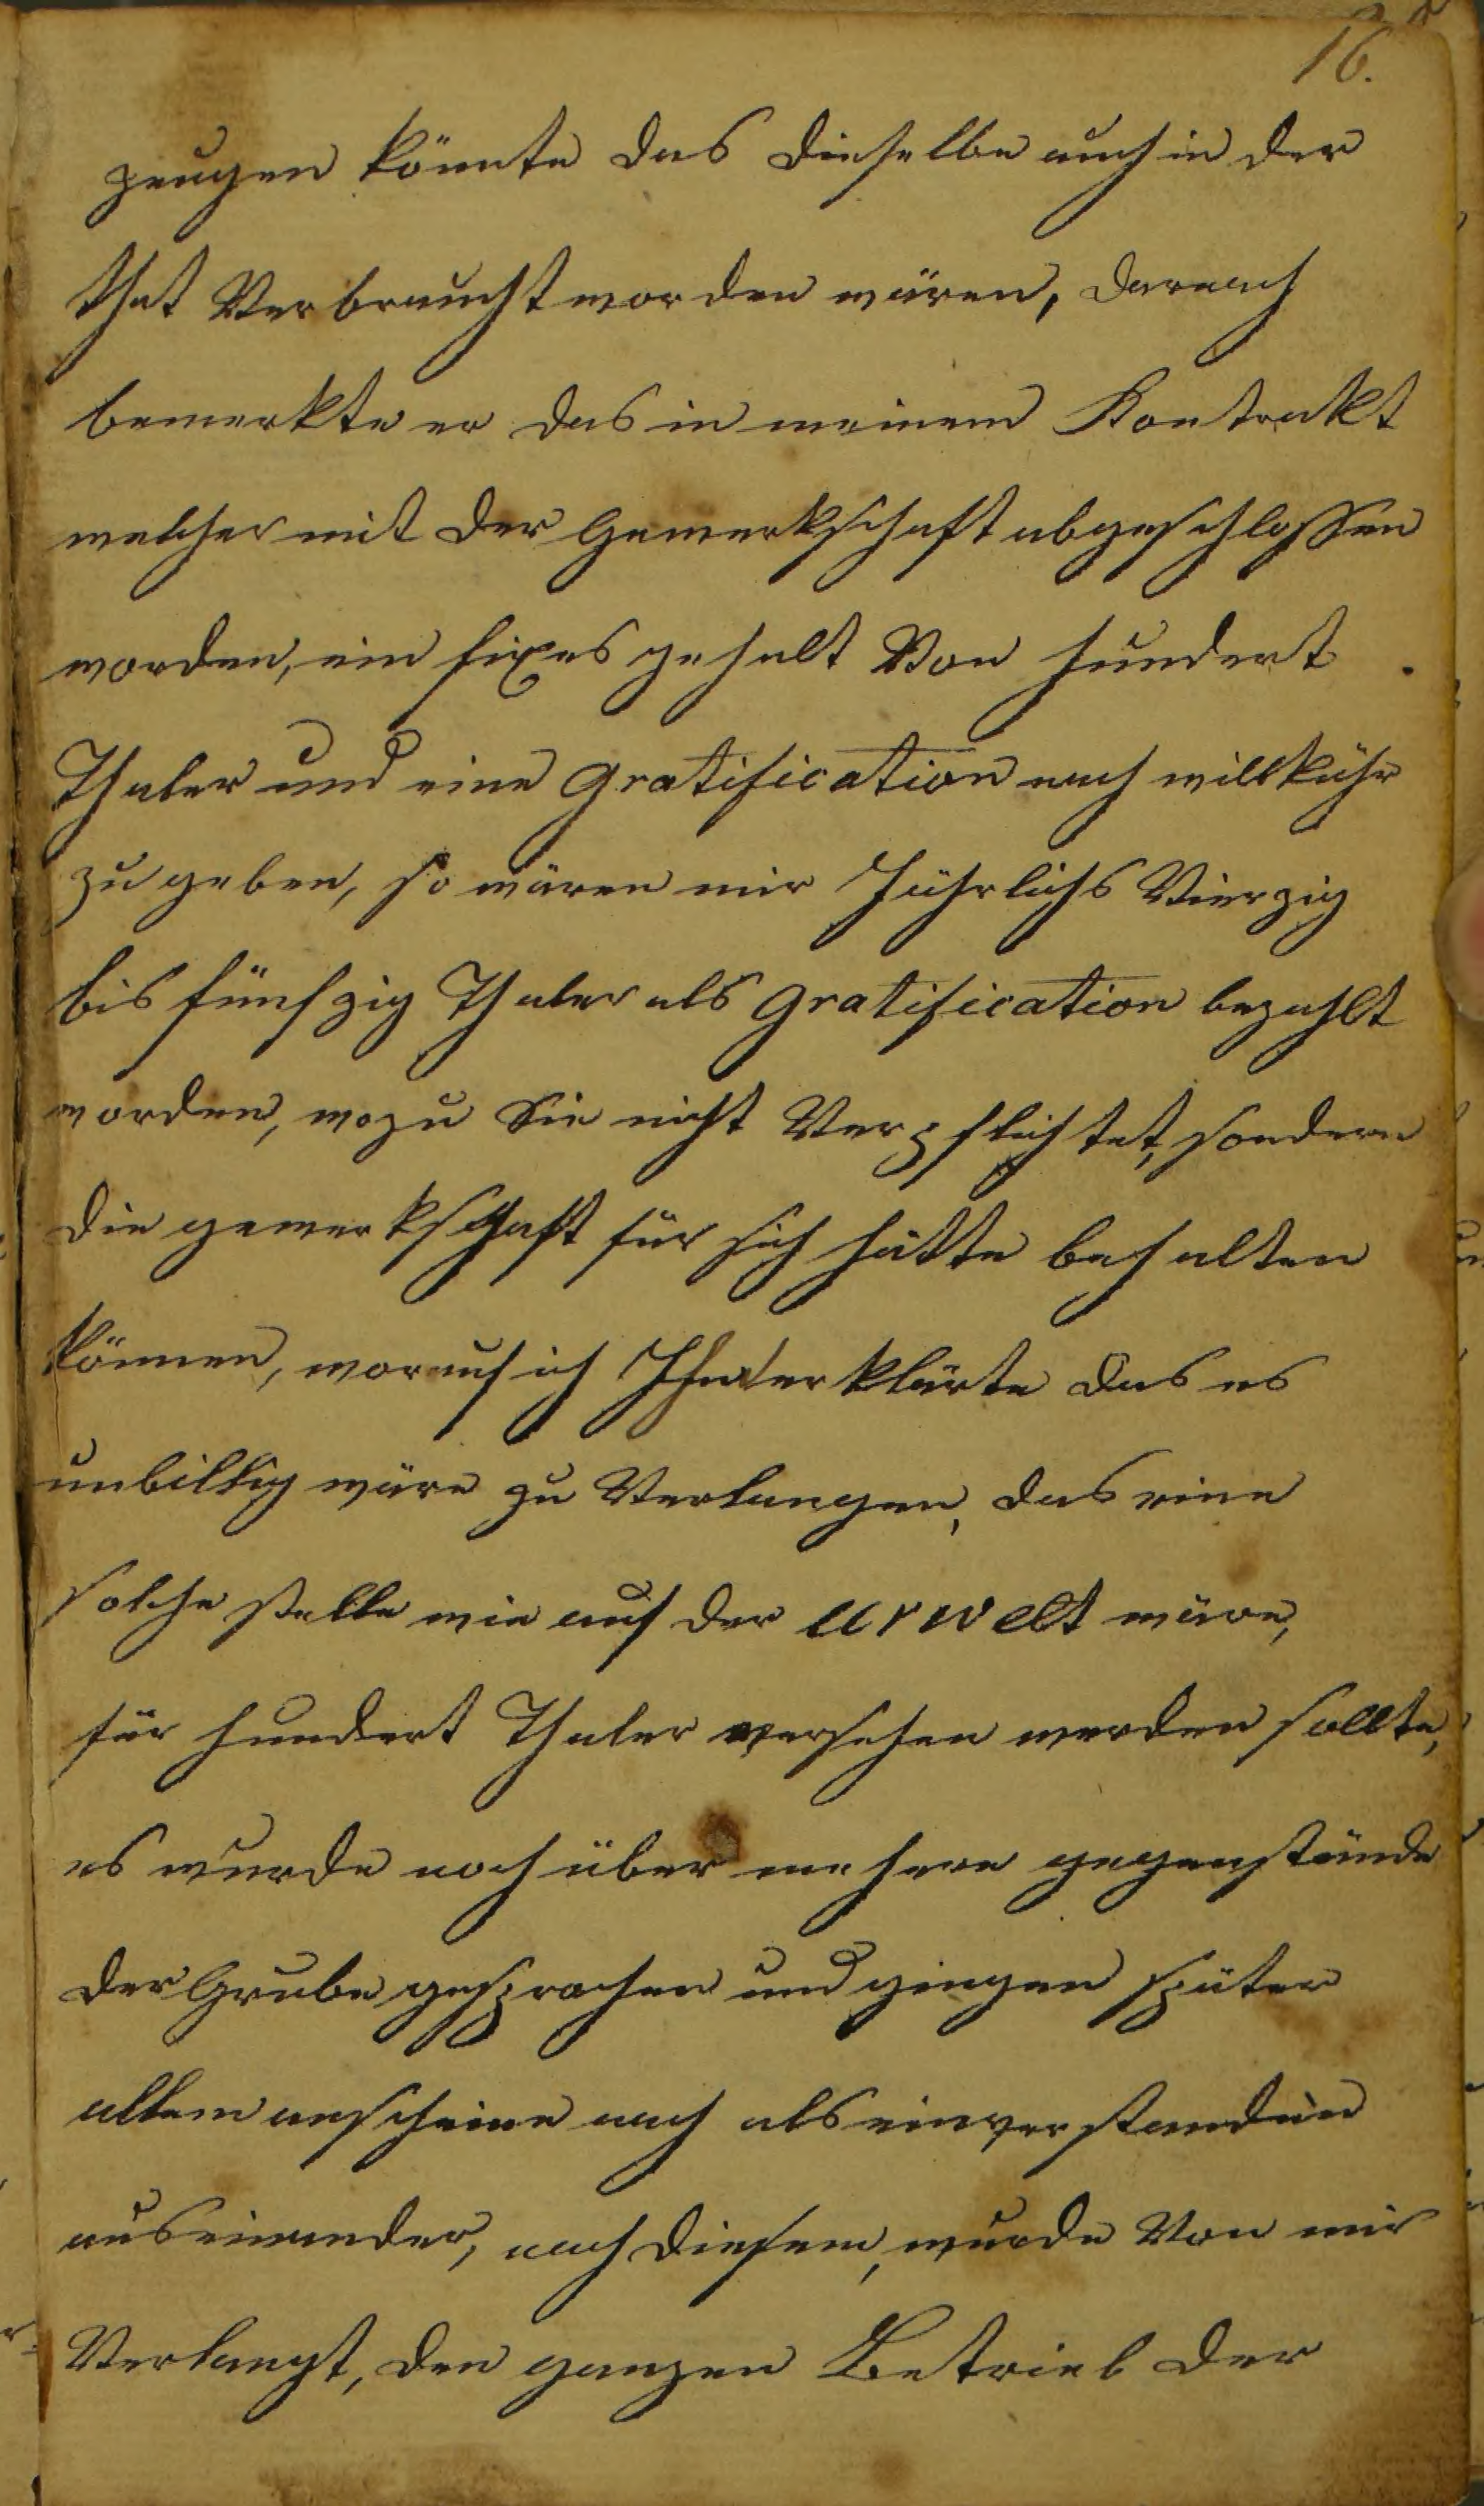 16.
zeugen könnte das dieselbe auch in der
that Verbraucht worden wären, darnach
bemerkte er das in meinem Kontrakt
welcher mit der Gewerkschaft abgeschlossen
worden, ein fixes gehalt Von hundert
Thaler und eine gratification nach willkühr
zu geben, so wären mir Jährlichs Vierzig
bis fünfzig Thaler als gratification bezahlt
worden, wozu Sie nicht Verpflichtet, sondern
die gewerkschaft für sich hätte behalten
können, worauf ich Ihm erklärte das es
unbillig wäre zu Verlangen, das eine
solche stelle wie auf der urwelt wäre,
für hundert Thaler versehen werden sollte,
es wurde noch über mehere gegenstände
der Grube gesprochen und gingen später
allem anscheine nach als einverstanden
auseinander, nach diesem, wurde Von mir
Verlangt, den ganzen Betrieb der